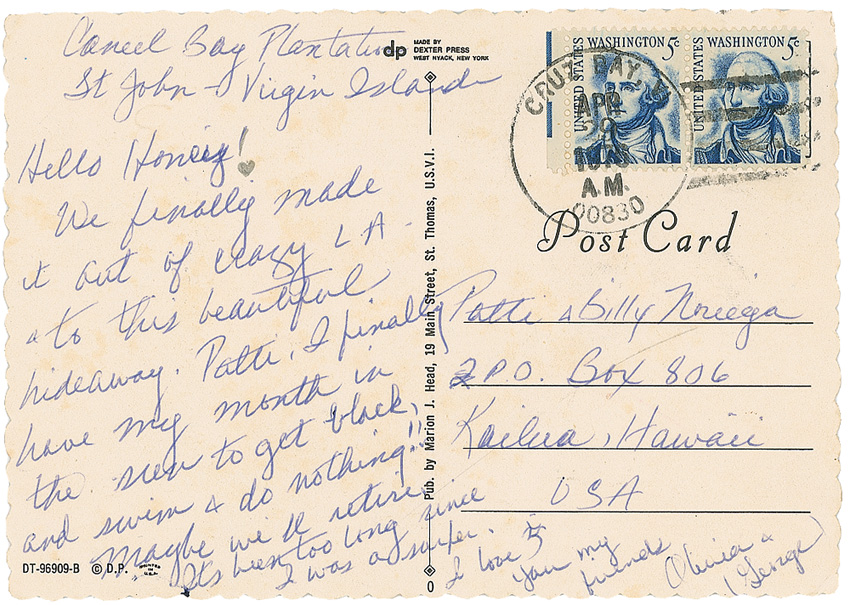 Caneel Bay Plantation
St John - Virgin Islands
Hello Honey!
We finally made
it out of crazy LA -
& to this beautiful
hideaway. Patti, I finally
have my month in
the sun to get black,
and swim & do nothing!!
Maybe we'll retire
Its been too long since
I was a surfer.
I love
you my
friends
Olivia &
George
dp MADE BY
DEXTER PRESS
WEST NYACK, NEW YORK
Pub. by Marion J. Head, 19 Main Street, St. Thomas, U.S.V.I.
DT-96909-B © D.P. PRINTED IN U.S.A.
0
UNITED STATES WASHINGTON 5c
UNITED STATES WASHINGTON 5c
CRUZ BAY, V.
APR
A.M.
00830
Post Card
Patti & Billy Noriega
P.O. Box 806
Kailua, Hawaii
USA